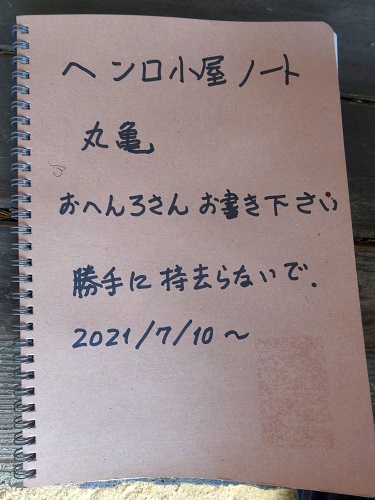 ヘンロ小屋ノート
丸亀
おへんろさん お書き下さい
勝手に持去らないで.
2021/7/10〜